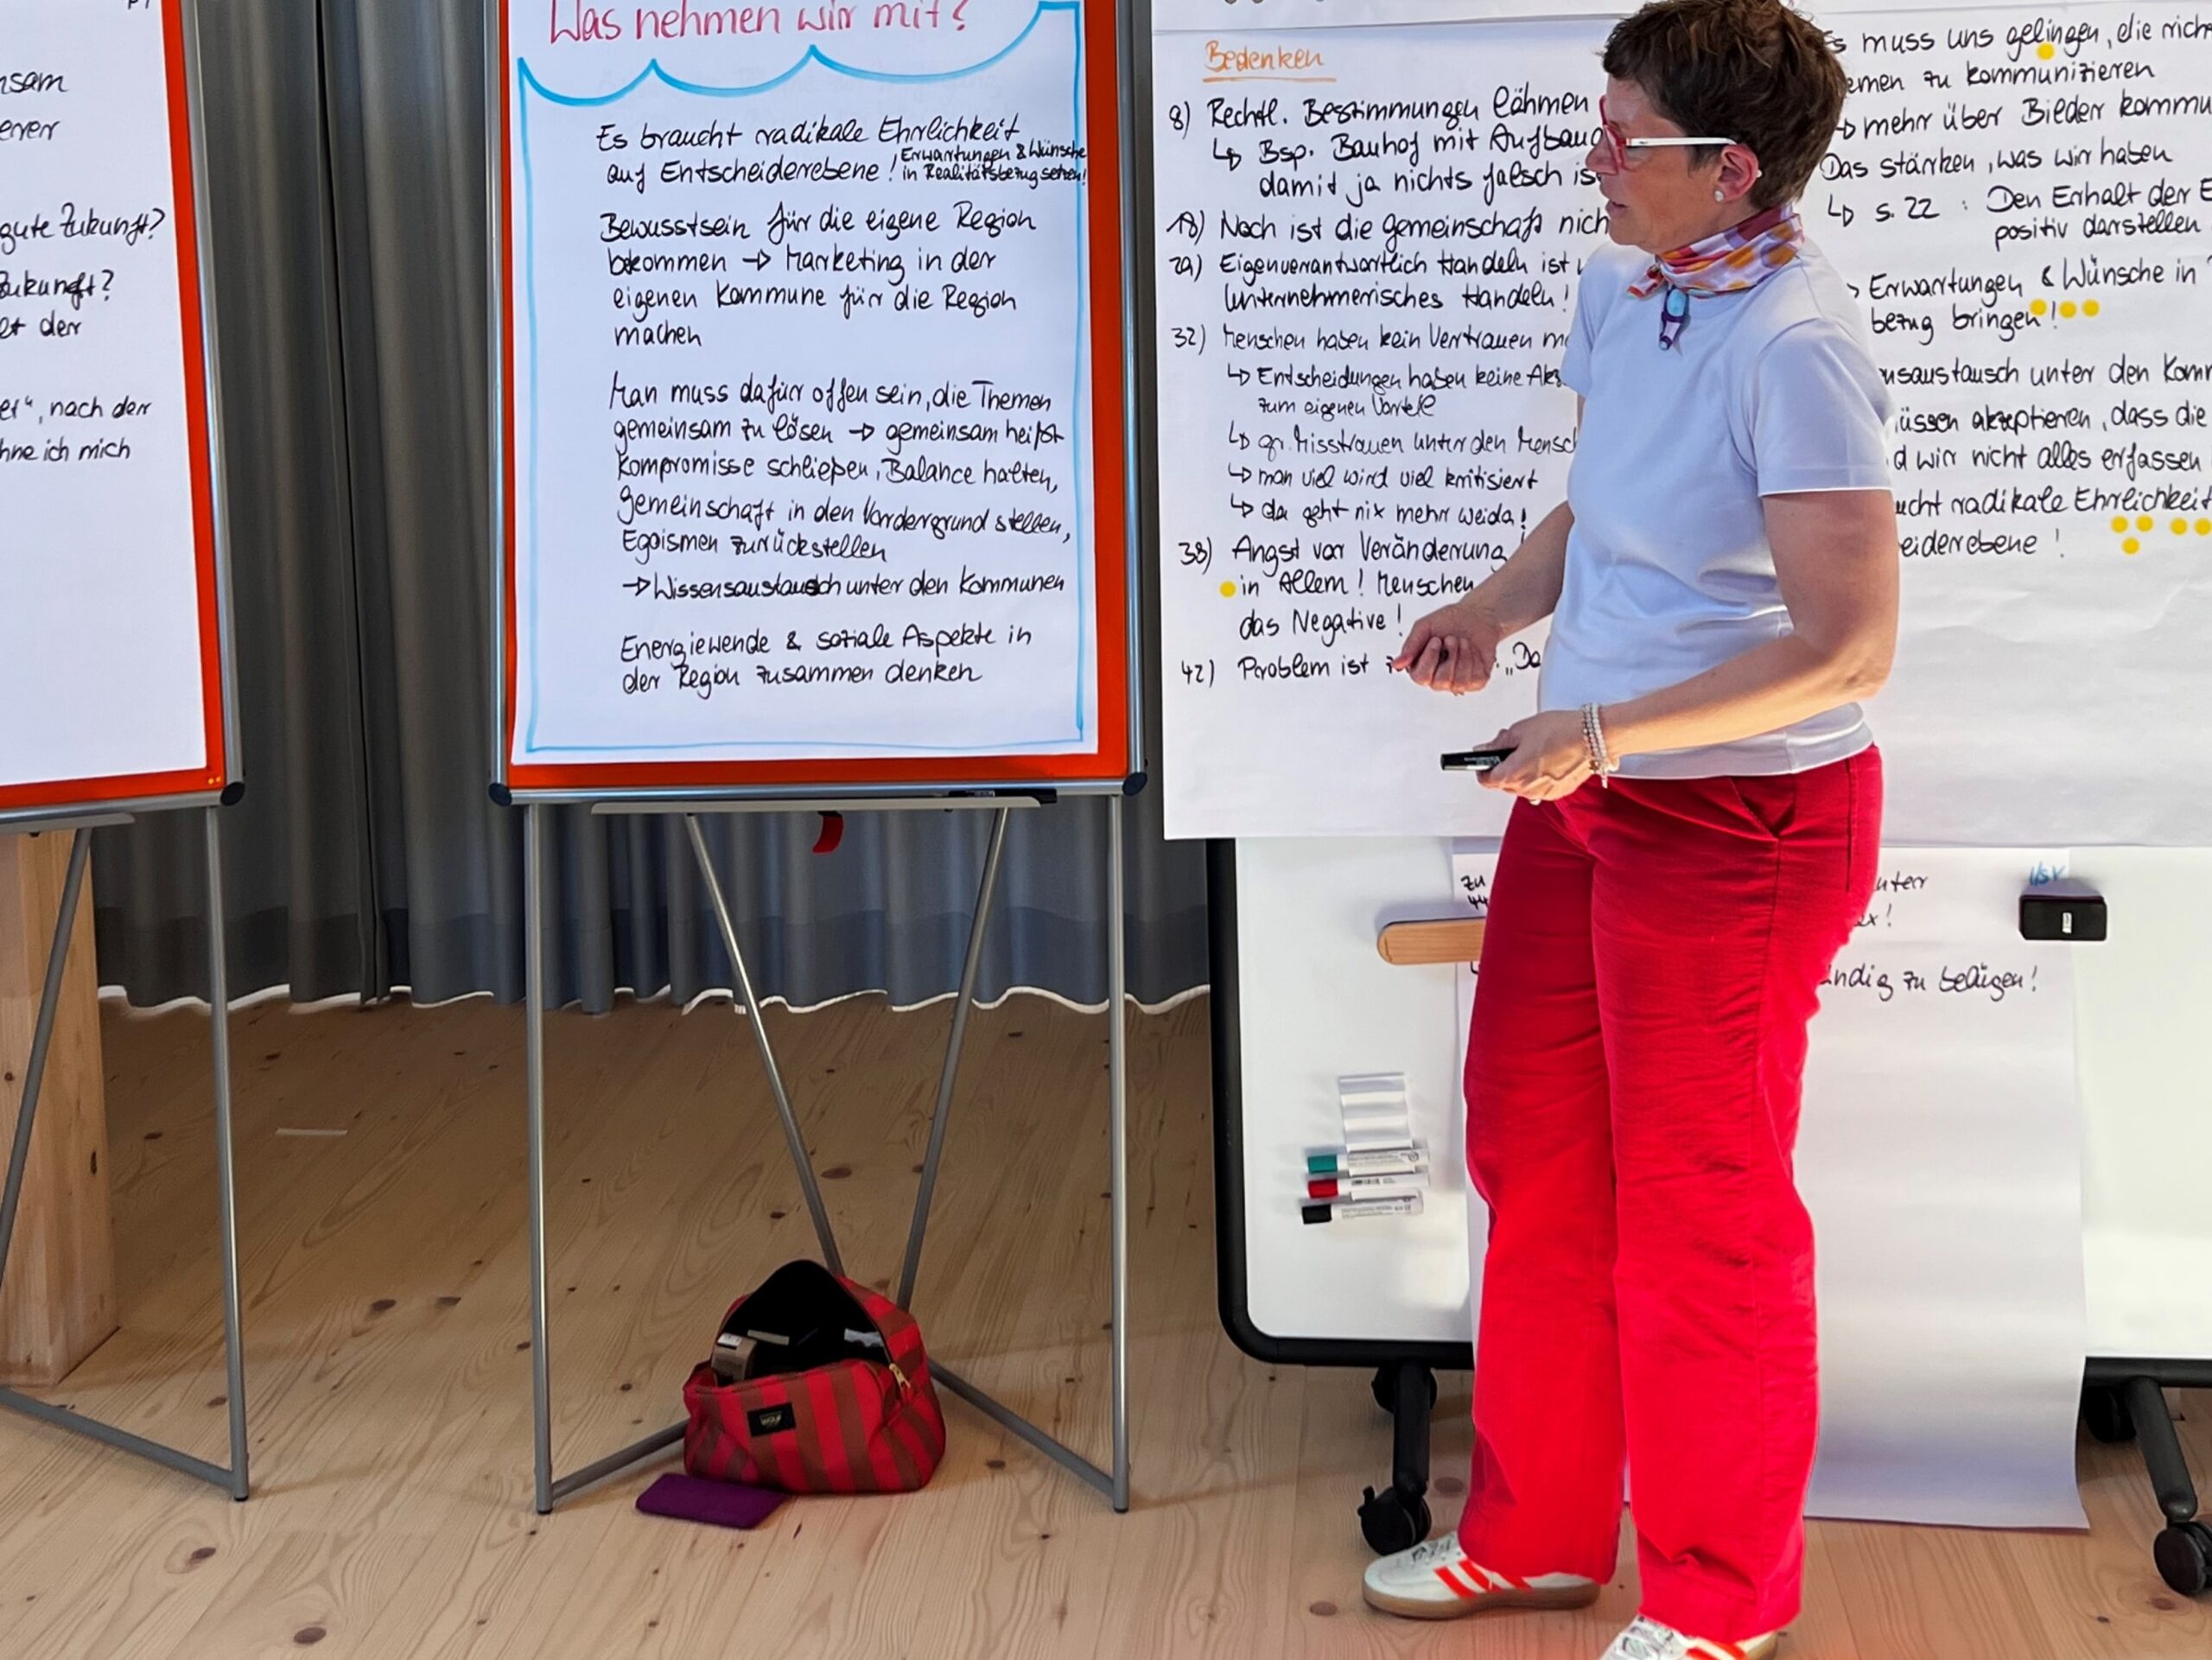 nsam
erer
gute Zukunft?
Zukunft?
et der
er", nach der
hne ich mich
Was nehmen wir mit?
Es braucht radikale Ehrlichkeit
auf Entscheiderebene! Erwartungen & Wünsche
in Realitätsbezug setzen!
Bewusstsein für die eigene Region
bekommen → Marketing in der
eigenen Kommune für die Region
machen
Man muss dafür offen sein, die Themen
gemeinsam zu lösen → gemeinsam heißt
Kompromisse schließen, Balance halten,
Gemeinschaft in den Vordergrund stellen,
Egoismen zurückstellen
→ Wissensaustausch unter den Kommunen
Energiewende & soziale Aspekte in
der Region zusammen denken
Bedenken
8) Rechtl. Bestimmungen lähmen
↳ Bsp. Bauhof mit Aufbau
damit ja nichts falsch is
18) Noch ist die Gemeinschaft nich
29) Eigenverantwortlich Handeln ist
Unternehmerisches Handeln!
32) Menschen haben kein Vertrauen m
↳ Entscheidungen haben keine Akz
zum eigenen Vorteile
↳ gr. Misstrauen unter den Mensc
↳ man viel wird viel kritisiert
↳ da geht nix mehr weida!
38) Angst vor Veränderung
in Allem! Menschen
das Negative!
42) Problem ist "Da
Es muss uns gelingen, die rich
emen zu kommunizieren
→ mehr über Bieder kommu
Das stärken, was wir haben
↳ S. 22 : Den Erhalt der E
positiv darstellen
Erwartungen & Wünsche in
bezug bringen!
nsaustausch unter den Komm
üssen akzeptieren, dass die
d wir nicht alles erfassen
ucht radikale Ehrlichkeit
eiderebene!
zu
44
unter
ex!
ändig zu belügen!